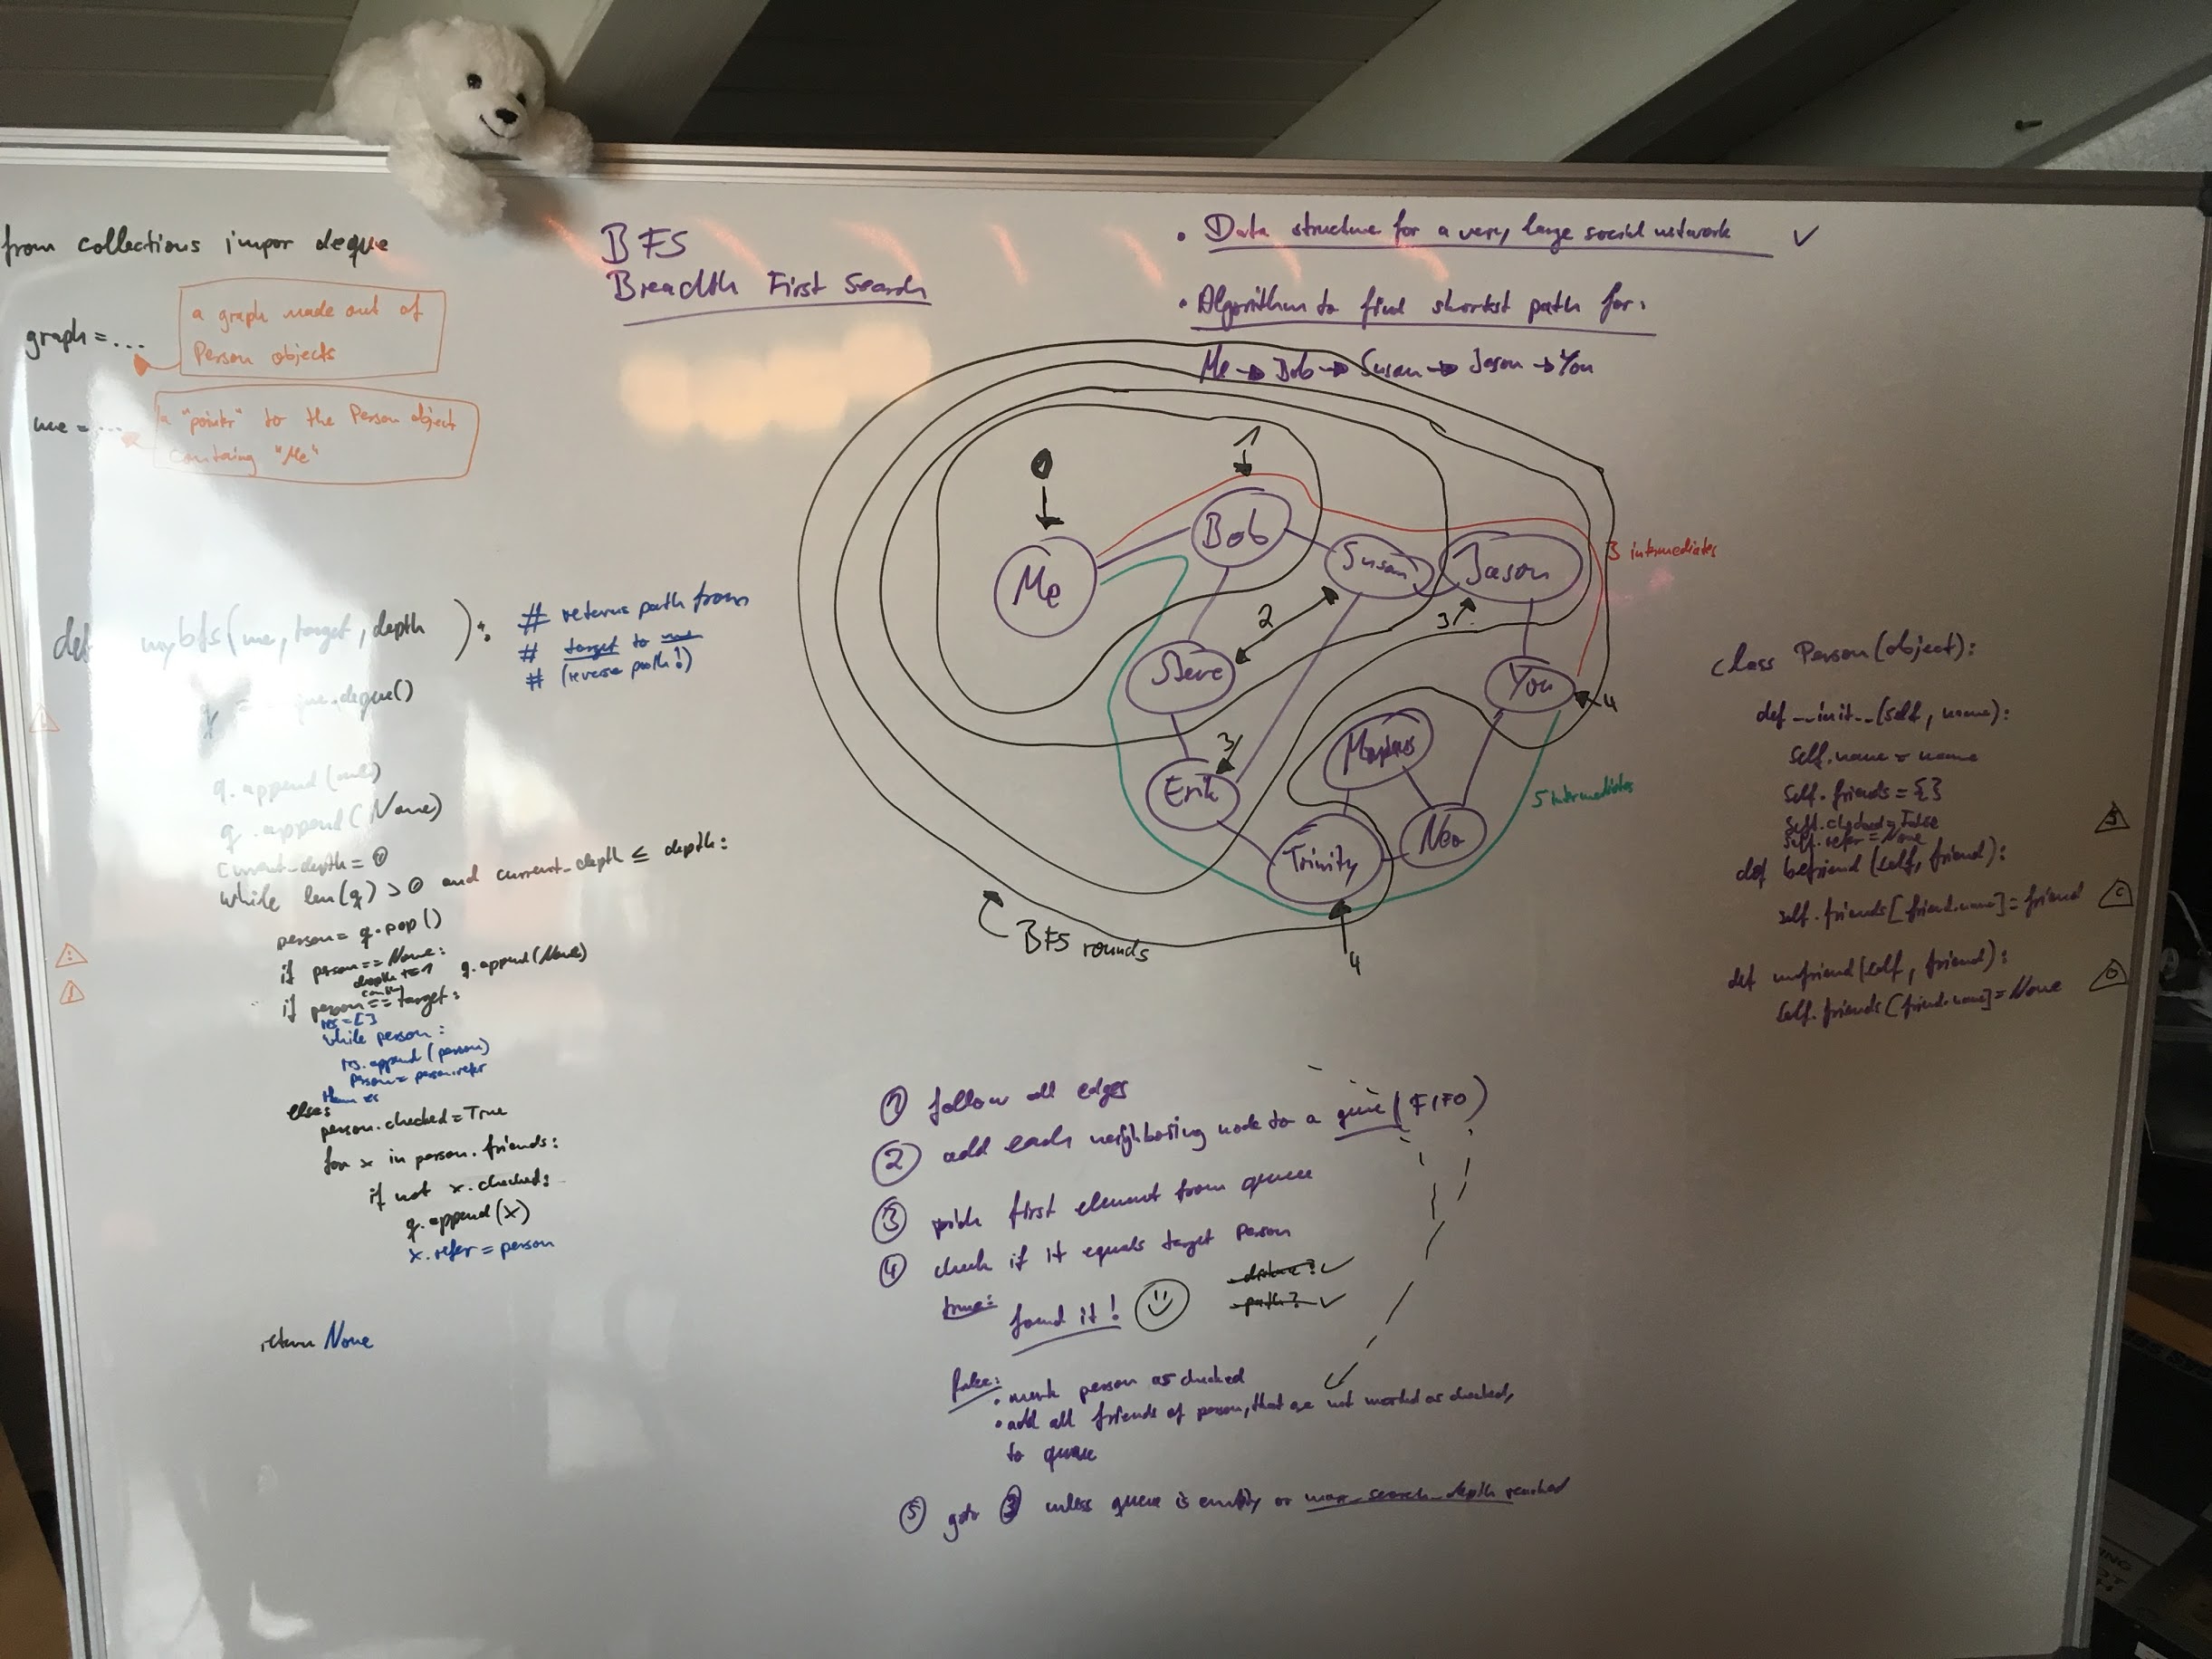 from collections impor deque
graph = ...
a graph made out of
Person objects
me = ...
a "pointer" to the Person object
containg "Me"
def mybfs(me, target, depth ):
# returns path from
# target to me
# (reverse path!)
q = que.deque()
q.append(me)
q.append(None)
current_depth = 0
while len(q) > 0 and current_depth ≤ depth:
person = q.pop()
if person == None:
depth += 1 q.append(None)
if person == target:
res = []
while person:
res.append(person)
person = person.refer
else:
person.checked = True
for x in person.friends:
if not x.checked:
q.append(x)
x.refer = person
return None
BFS
Breadth First Search
• Data structure for a very large social network ✓
• Algorithm to find shortest path for:
Me → Bob → Susan → Jason → You
0
1
Me
Bob
Susan
Jason
3 intermediates
2
3
Steve
You
4
Morpheus
3
Erik
5 intermediates
Trinity
Neo
BFS rounds
4
① follow all edges
② add each neighboring node to a queue (FIFO)
③ pick first element from queue
④ check if it equals target person
true: found it!
distance? ✓
path? ✓
false:
• mark person as checked
• add all friends of person, that are not marked as checked,
to queue
⑤ goto ③ unless queue is empty or max_search_depth reached
class Person(object):
def __init__(self, name):
self.name = name
self.friends = {}
self.checked = False
self.refer = None
def befriend(self, friend):
self.friends[friend.name] = friend
def unfriend(self, friend):
self.friends[friend.name] = None